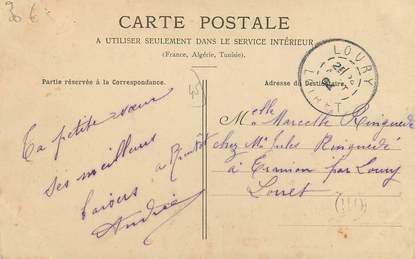 30 €
CARTE POSTALE
A UTILISER SEULEMENT DANS LE SERVICE INTÉRIEUR
(France, Algérie, Tunisie).
Partie réservée à la Correspondance.
Adresse du Destinataire.
LOURY
LOIRET
45
Ta petite sœur
Ses meilleurs
baisers, à Bientôt
Andrée
Melle Marcelle Ringuedé
chez Mr Jules Ringuedé
à par Loury
Loiret